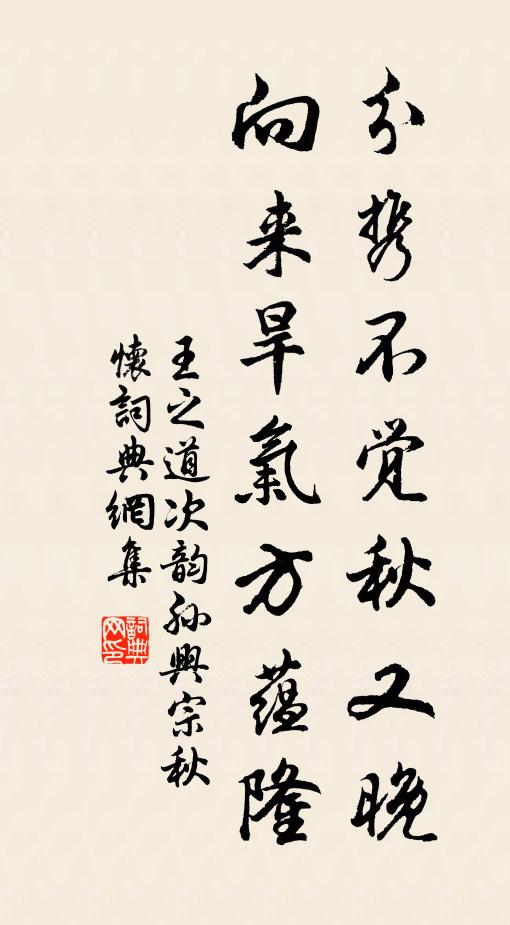 分携不觉秋又晚
向来旱氣方蕴隆
王之道次韵孙興宗秋
懷詞典網集
詞典
网印